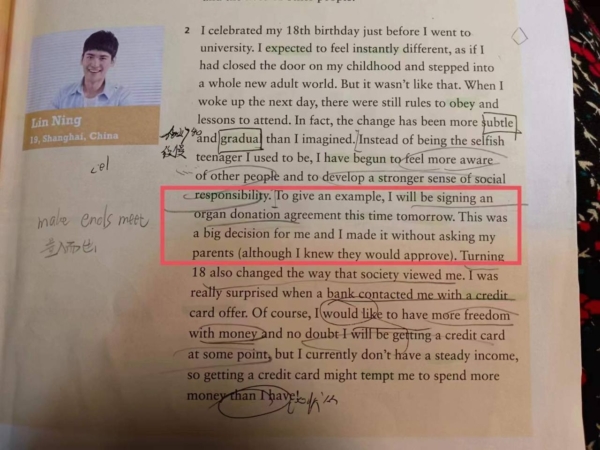 2 I celebrated my 18th birthday just before I went to
university. I expected to feel instantly different, as if I
had closed the door on my childhood and stepped into
a whole new adult world. But it wasn't like that. When I
woke up the next day, there were still rules to obey and
lessons to attend. In fact, the change has been more subtle
and gradual than I imagined. Instead of being the selfish
teenager I used to be, I have begun to feel more aware
of other people and to develop a stronger sense of social
responsibility. To give an example, I will be signing an
organ donation agreement this time tomorrow. This was
a big decision for me and I made it without asking my
parents (although I knew they would approve). Turning
18 also changed the way that society viewed me. I was
really surprised when a bank contacted me with a credit
card offer. Of course, I would like to have more freedom
with money and no doubt I will be getting a credit card
at some point, but I currently don't have a steady income,
so getting a credit card might tempt me to spend more
money than I have!
Lin Ning
19, Shanghai, China
make ends meet